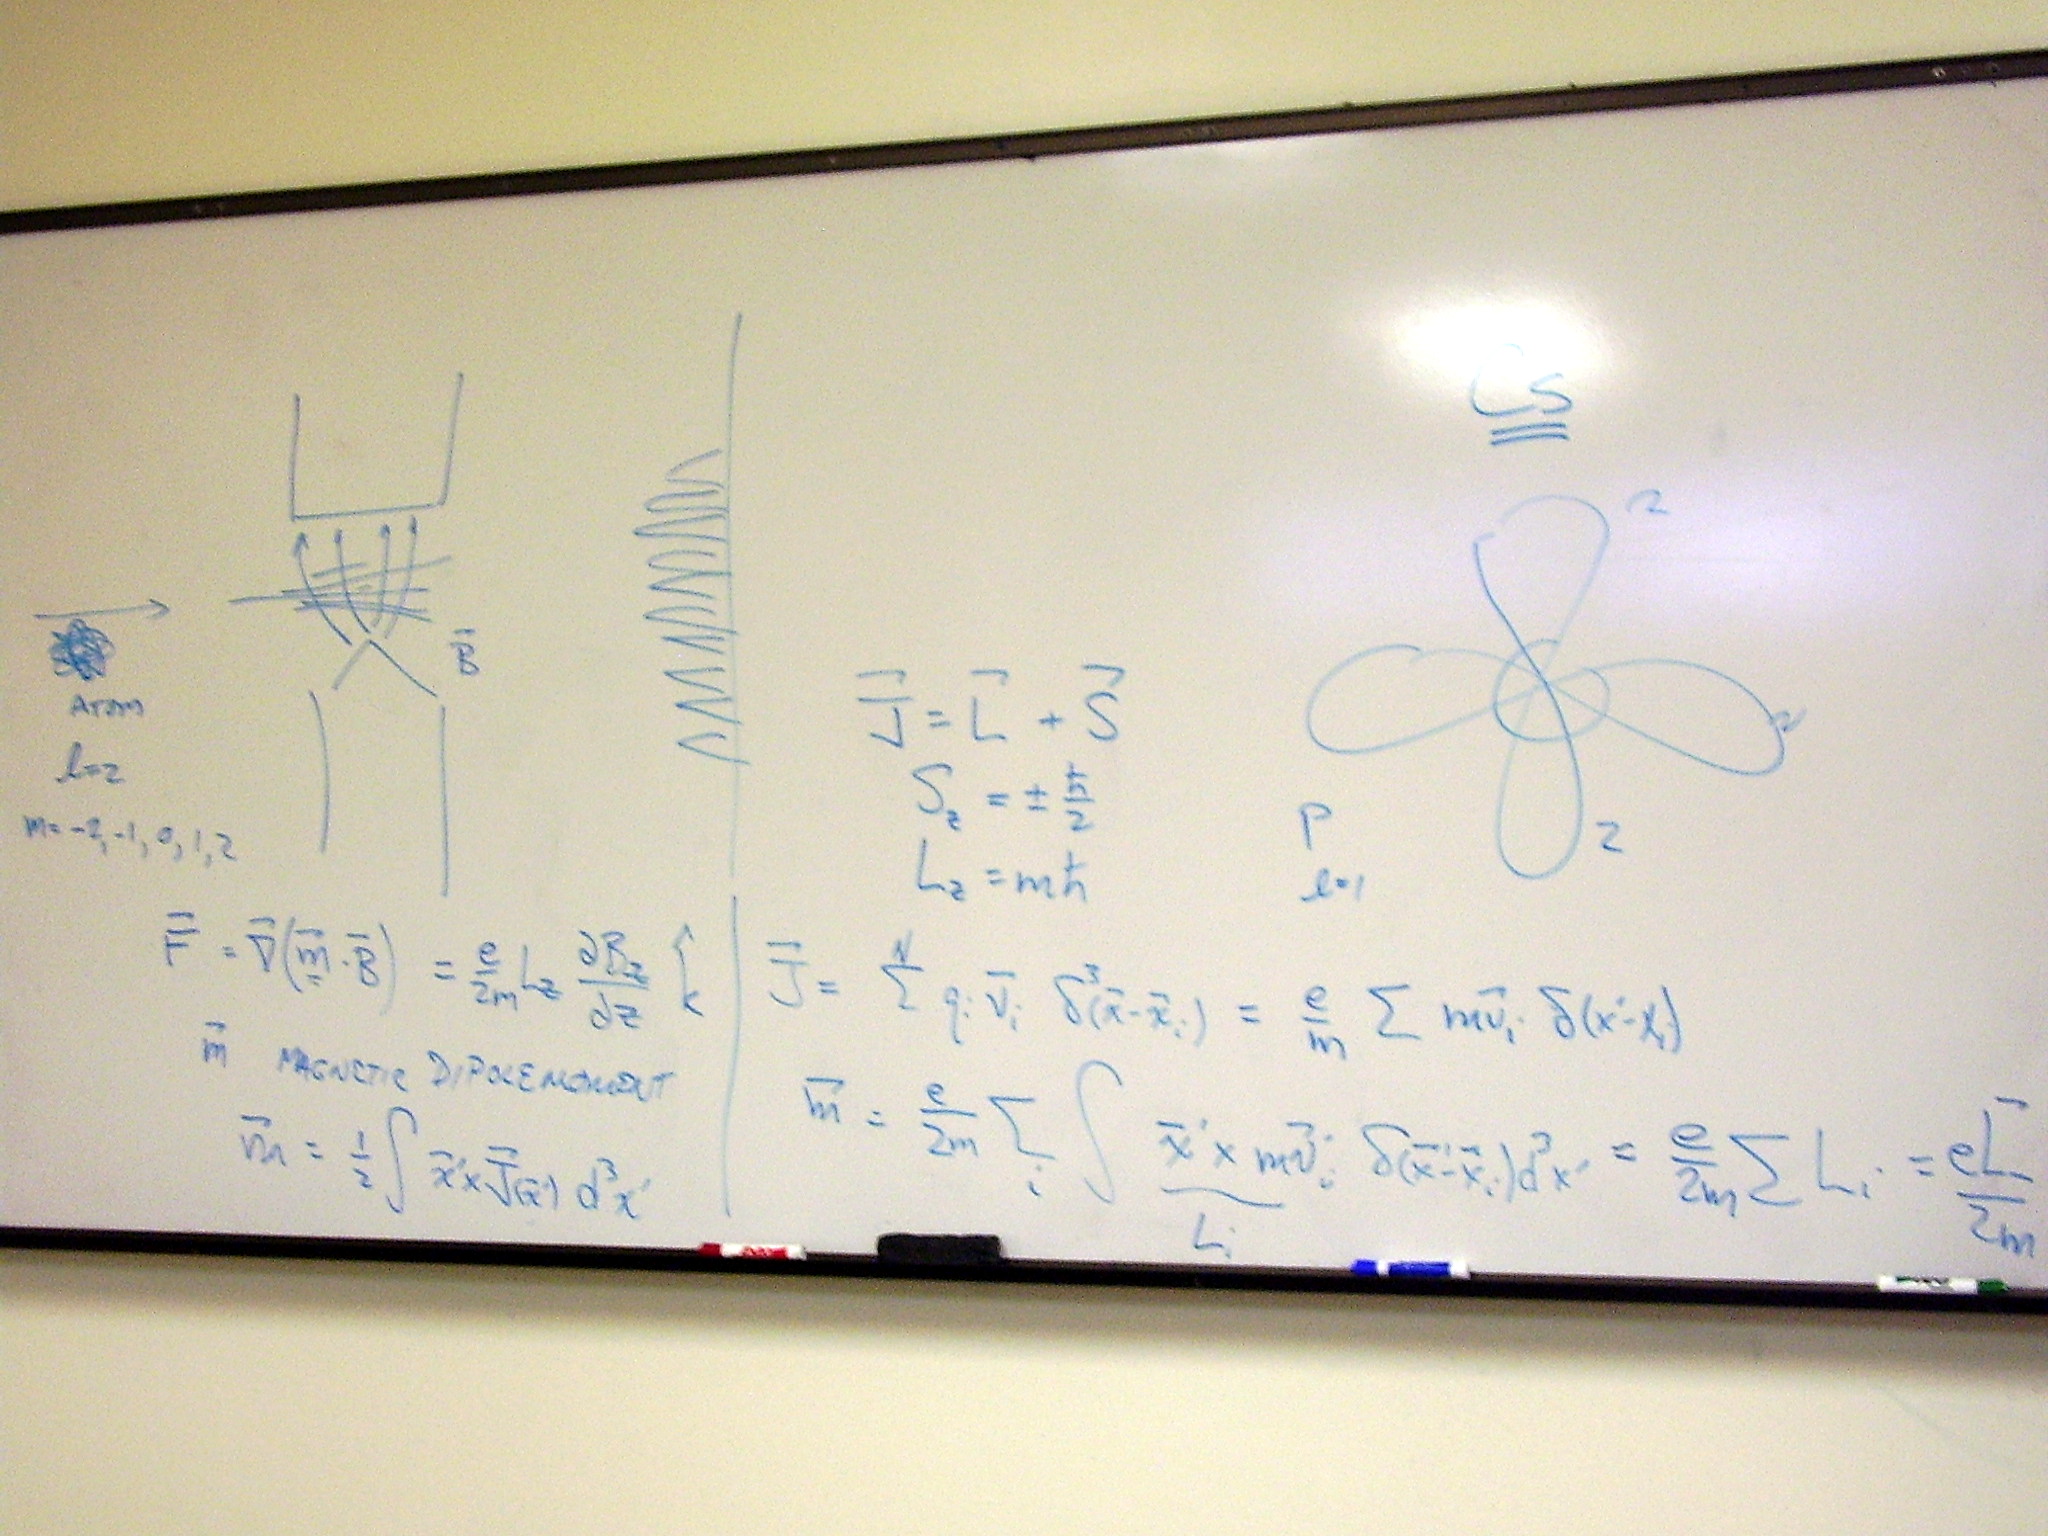 Cs
2
2
2
B⃗
ATOM
l=2
m = -2, -1, 0, 1, 2
J⃗ = L⃗ + S⃗
S_z = ± ħ/2
L_z = mħ
P
l=1
F⃗ = ∇⃗(m⃗ · B⃗) = e/2m L_z ∂B_z/∂z k̂
m⃗ MAGNETIC DIPOLE MOMENT
m⃗ = 1/2 ∫ x⃗' × J⃗(x⃗') d³x'
J⃗ = Σ^N q_i v⃗_i δ³(x⃗ - x⃗_i) = e/m Σ m v⃗_i δ(x' - x_i)
m⃗ = e/2m Σ_i ∫ x⃗' × m v⃗_i δ(x⃗' - x⃗_i) d³x' = e/2m Σ L_i = eL⃗/2m
L_i